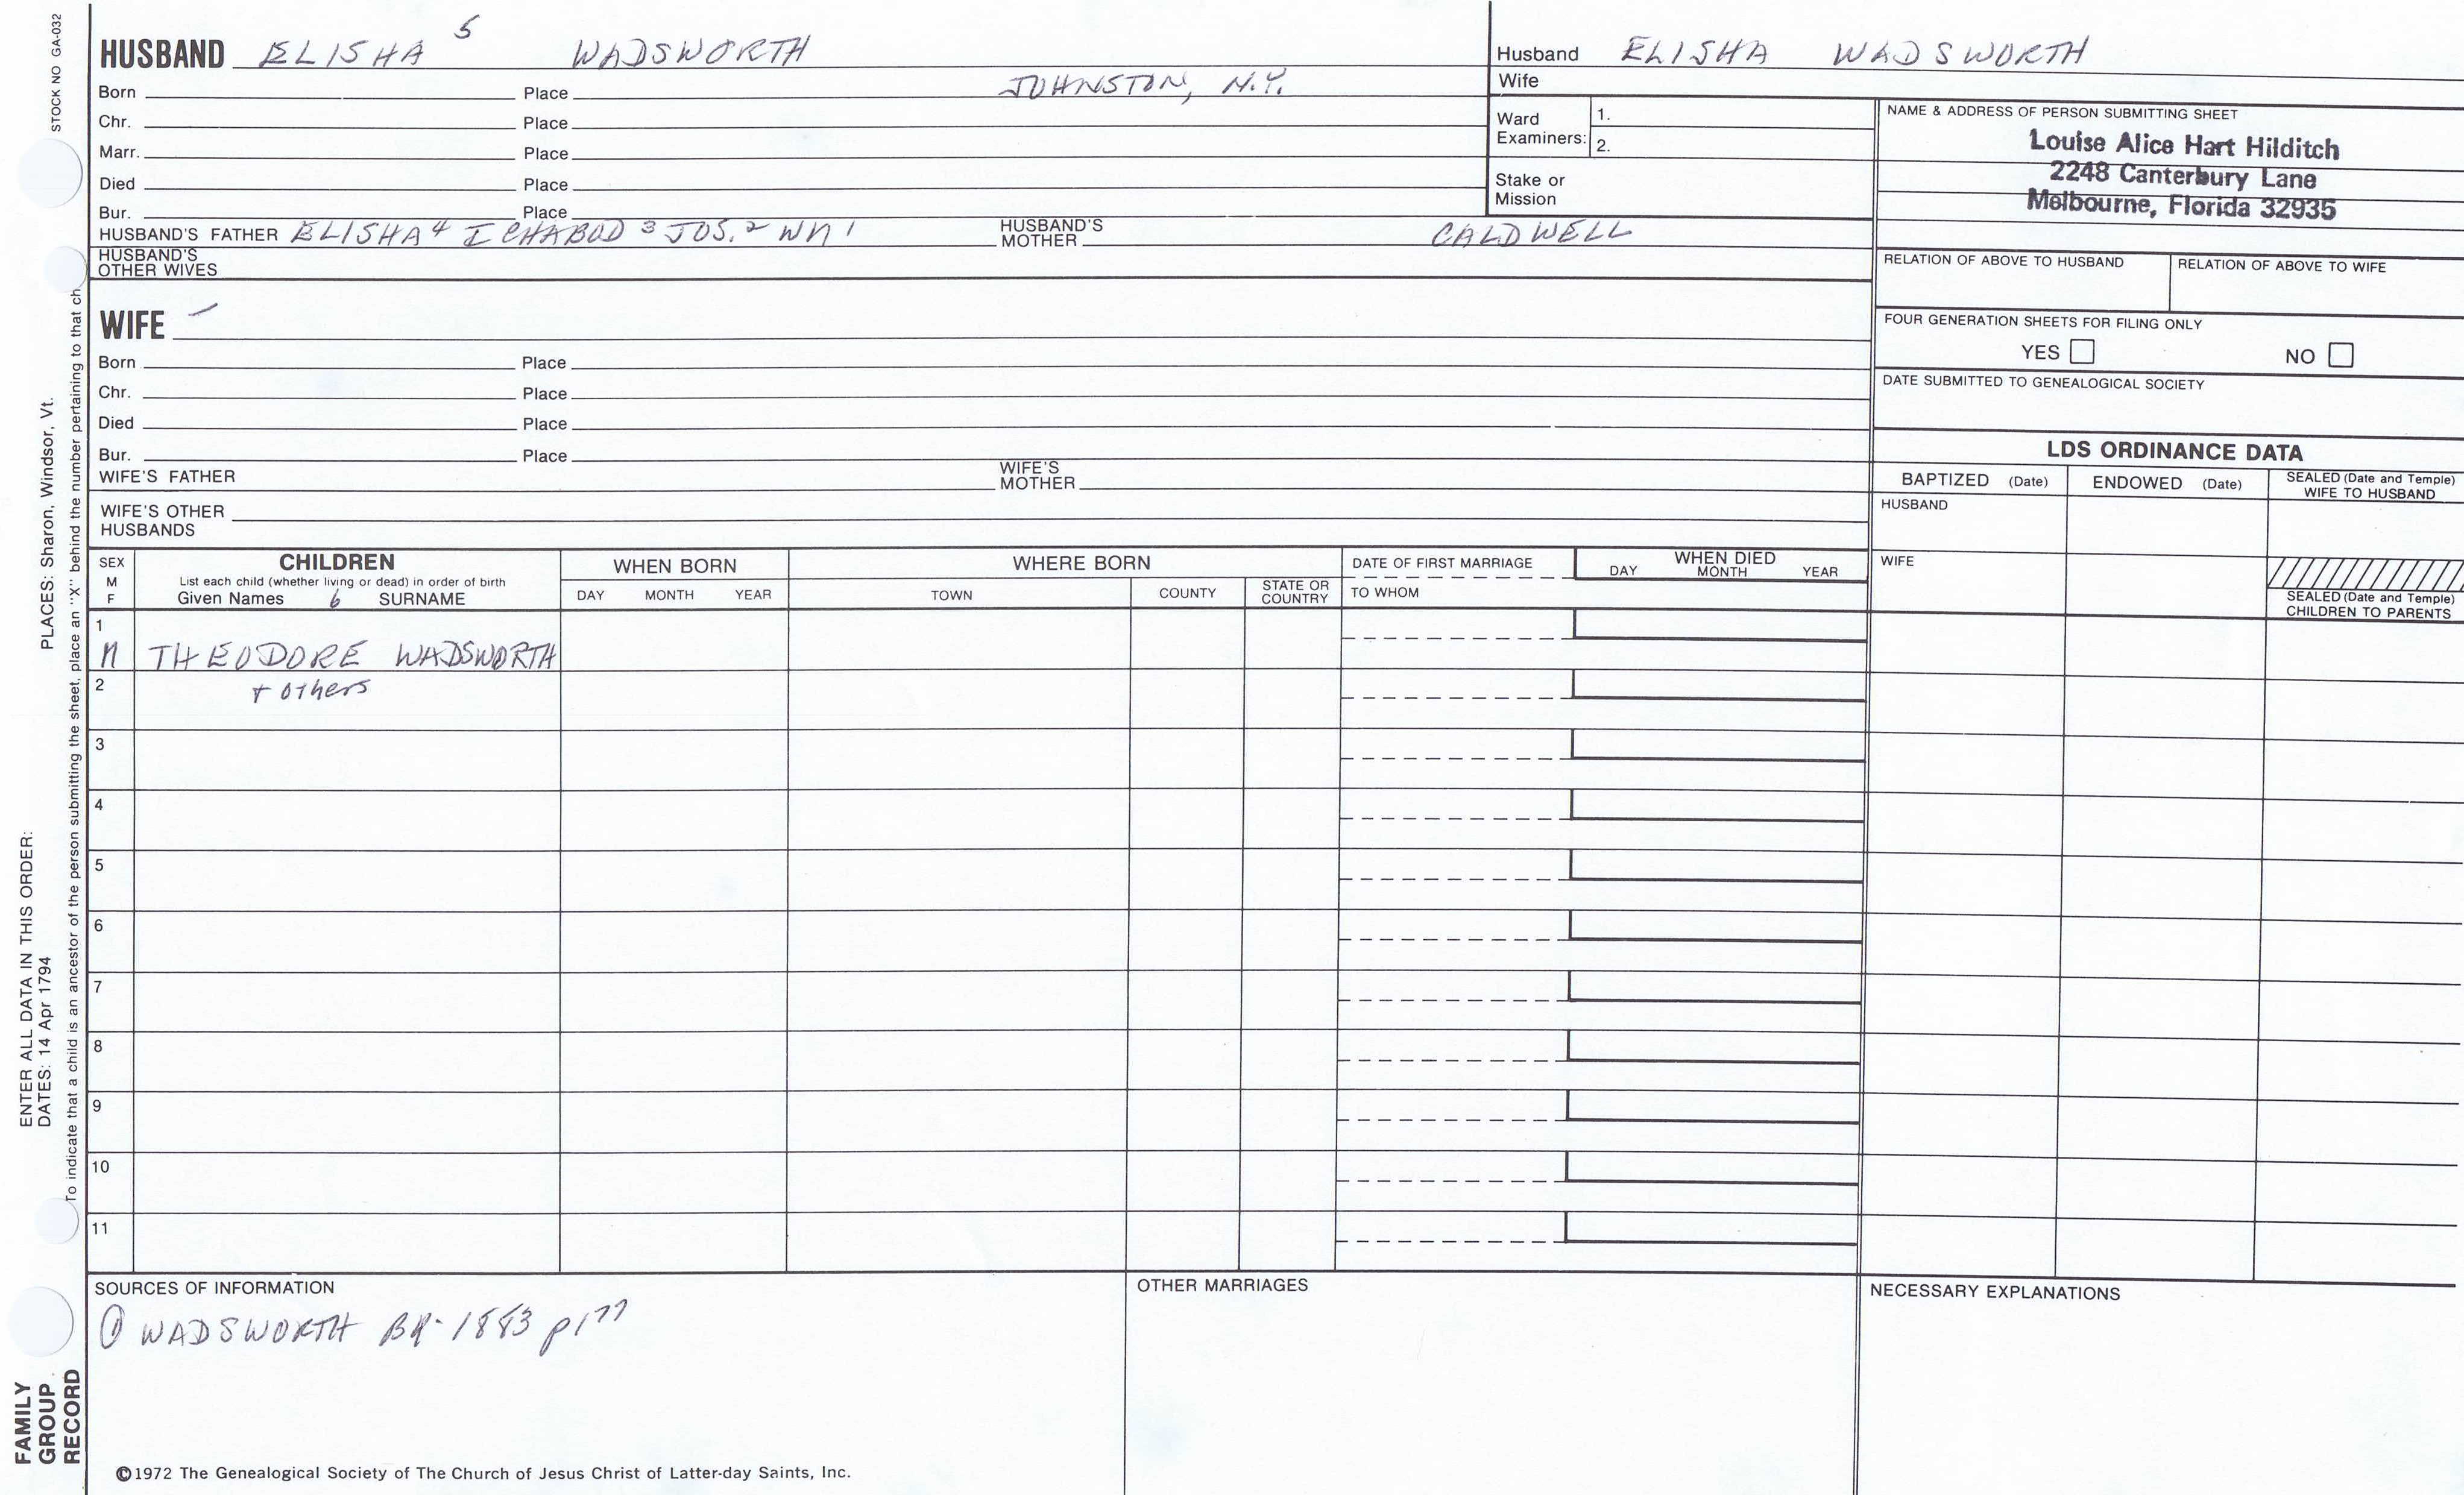 STOCK NO GA-032
HUSBAND ELISHA 5 WADSWORTH
Born Place JOHNSTON, N.Y.
Chr. Place
Marr. Place
Died Place
Bur. Place
HUSBAND'S FATHER ELISHA 4 ICHABOD 3 JOS. 2 WM 1 HUSBAND'S MOTHER CALDWELL
HUSBAND'S OTHER WIVES
WIFE —
Born Place
Chr. Place
Died Place
Bur. Place
WIFE'S FATHER WIFE'S MOTHER
WIFE'S OTHER HUSBANDS
Husband ELISHA WADSWORTH
Wife
Ward Examiners: 1.
2.
Stake or Mission
NAME & ADDRESS OF PERSON SUBMITTING SHEET
Louise Alice Hart Hilditch
2248 Canterbury Lane
Melbourne, Florida 32935
RELATION OF ABOVE TO HUSBAND RELATION OF ABOVE TO WIFE
FOUR GENERATION SHEETS FOR FILING ONLY
YES NO
DATE SUBMITTED TO GENEALOGICAL SOCIETY
LDS ORDINANCE DATA
BAPTIZED (Date) ENDOWED (Date) SEALED (Date and Temple) WIFE TO HUSBAND
HUSBAND
WIFE
SEALED (Date and Temple) CHILDREN TO PARENTS
SEX M F CHILDREN WHEN BORN WHERE BORN DATE OF FIRST MARRIAGE WHEN DIED
List each child (whether living or dead) in order of birth
Given Names 6 SURNAME DAY MONTH YEAR TOWN COUNTY STATE OR COUNTRY TO WHOM DAY MONTH YEAR
1
M THEODORE WADSWORTH
2 + others
3
4
5
6
7
8
9
10
11
SOURCES OF INFORMATION OTHER MARRIAGES NECESSARY EXPLANATIONS
① WADSWORTH BK- 1883 p177
©1972 The Genealogical Society of The Church of Jesus Christ of Latter-day Saints, Inc.
FAMILY
GROUP
RECORD
ENTER ALL DATA IN THIS ORDER:
DATES: 14 Apr 1794 PLACES: Sharon, Windsor, Vt.
To indicate that a child is an ancestor of the person submitting the sheet, place an "X" behind the number pertaining to that ch